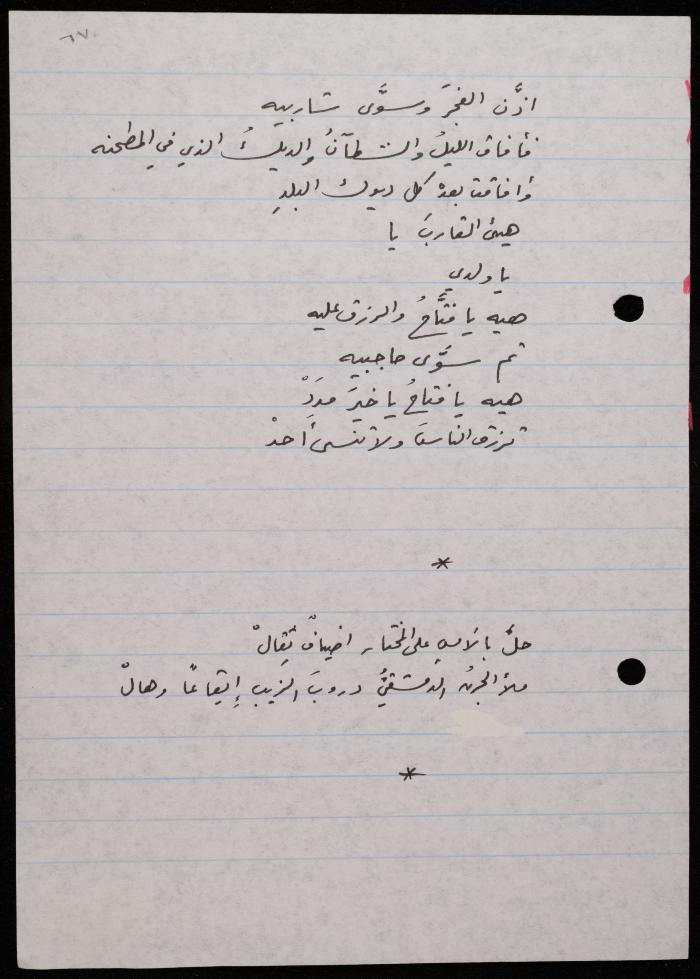 ٦٧.
اذَّن الفجرَ وسوَّى شاربيه
فأفاق الليلُ والشطآنُ والديكُ الذي في المطحنه
وأفاقت بعدهُ كل ديوك البلدِ
هيئ القاربَ يا
يا ولدي
هيه يا فتَّاحُ والرزق عليه
ثم سوَّى حاجبيه
هيه يا فتاحُ يا خيرَ مدَدْ
ترزق الناسَ ولا تنسى أحدْ
*
حلَّ بالامسِ على المختار اضيافٌ ثقالْ
ملأ الجرنُ الدمشقيُّ دروبَ الزيب إيقاعًا وهالْ
*